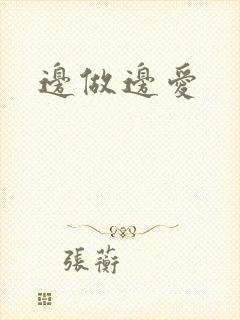 邊做邊愛
張蘅